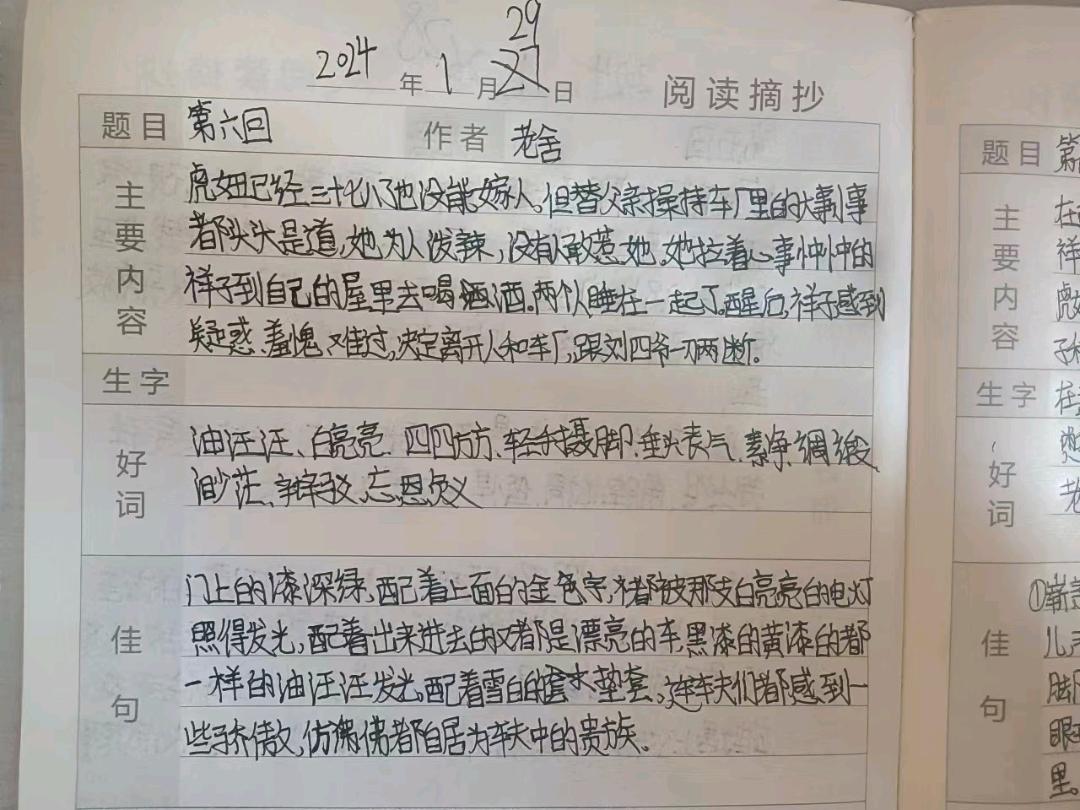 29
2024年1月27日 阅读摘抄
题目 第六回 作者 老舍
主要内容
虎妞已经三十七八了也没能嫁人,但替父亲操持车厂里的大事小事
都头头是道,她为人泼辣,没有人敢惹她,她拉着心事忡忡的
祥子到自己的屋里去喝洒酒。两个人睡在一起了。醒后,祥子感到
疑惑、羞愧、难过,决定离开人和车厂,跟刘四爷一刀两断。
生字
好词
油汪汪、白亮亮、四四方方、轻手摄脚、垂头丧气、素净、绸缎、
渺茫、辩驳、忘恩负义
佳句
门上的漆深绿,配着上面的金色字,都被那支白亮亮的电灯
照得发光,配着出来进去的又都是漂亮的车,黑漆的黄漆的都
一样的油汪汪发光,配着雪白的垫套,连车夫们都感到一
些骄傲,仿佛都自居为车夫中的贵族。
题目 第
主要内容
在
祥
虎妞
子和
生字 在
好词
老
佳句
①崭
儿
脚
眼
里。